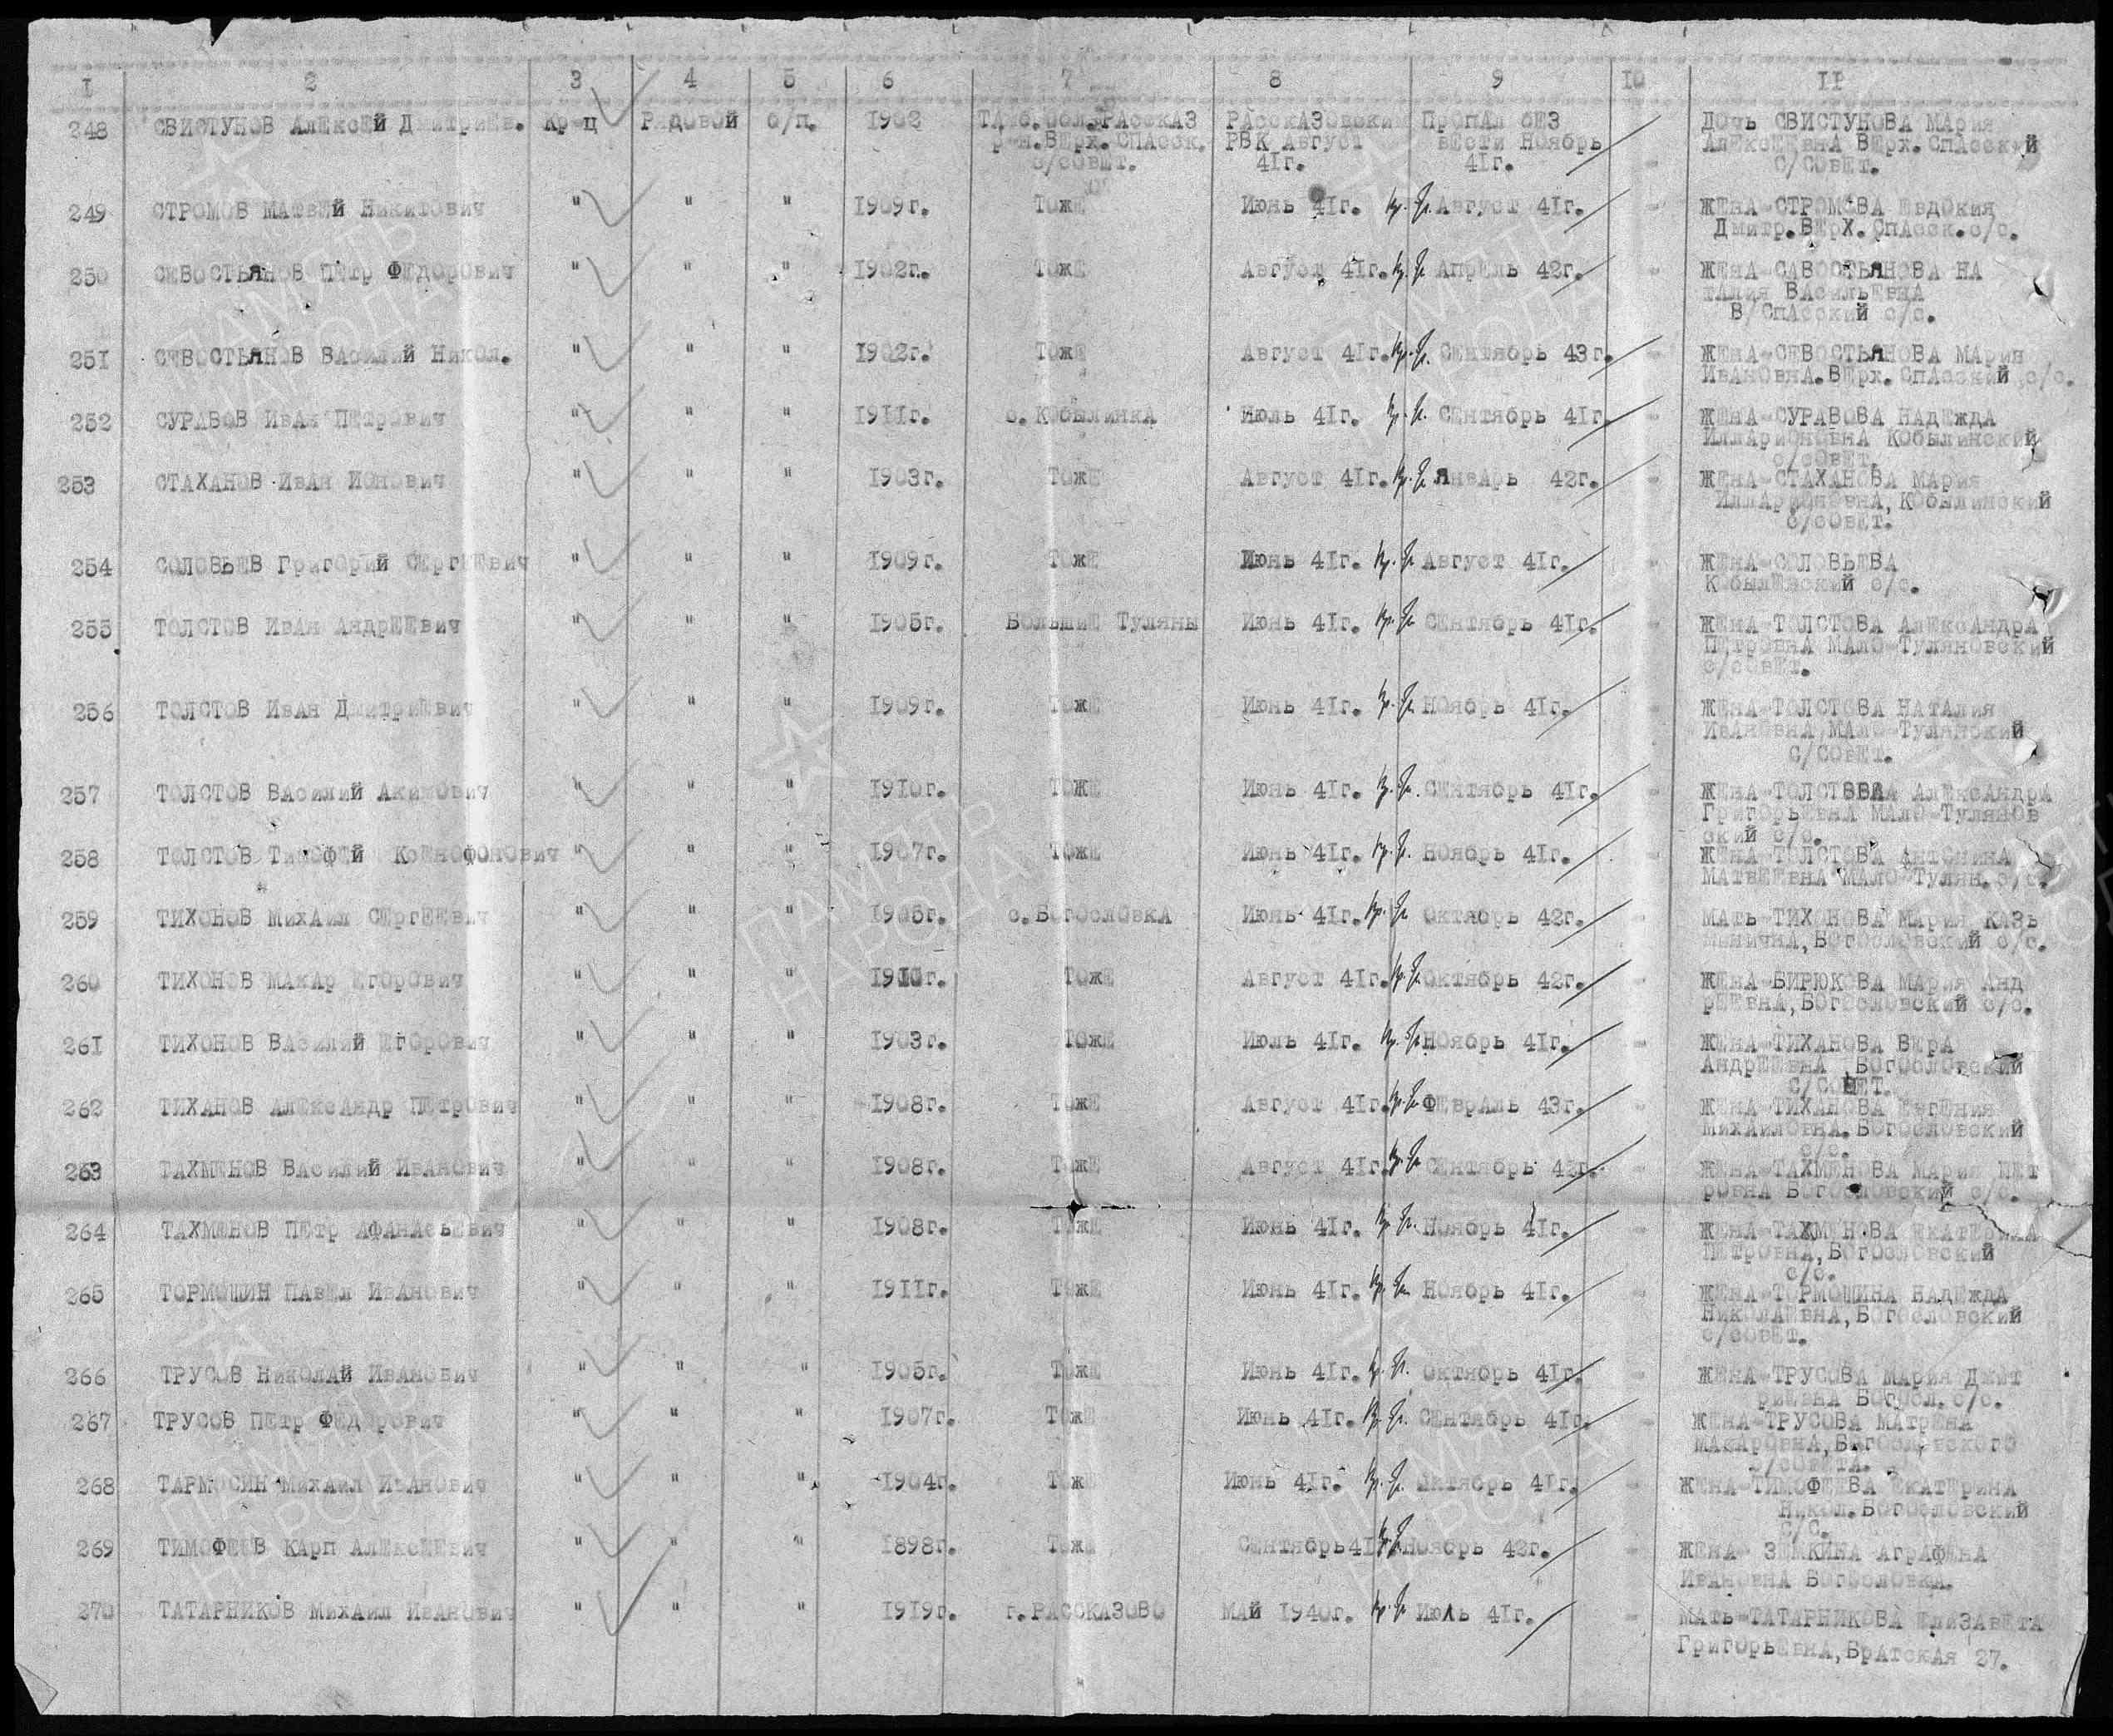 1 2 3 4 5 6 7 8 9 10 11
248 СВИСТУНОВ Алексей Дмитриев. Кр-ц Рядовой с/п. 1902 Тамб.обл.Рассказ Рассказовским Пропал без Дочь СВИСТУНОВА Мария
р-н.Верх.Спасск. РВК Август вести Ноябрь Алексеевна Верх.Спасский
с/совет. 41г. 41г. - с/совет.
249 СТРОМОВ Матвей Никитович " " " 1909г. Тоже Июнь 41г. Август 41г. - Жена-СТРОМОВА Евдокия
Дмитр.Верх.Спасск.с/с.
250 СЕВОСТЬЯНОВ Петр Федорович " " " 1902г. Тоже Август 41г. Апрель 42г. - Жена-САВОСТЬЯНОВА На
талия Васильевна
В/Спасский с/с.
251 СЕВОСТЬЯНОВ Василий Никол. " " " 1902г. Тоже Август 41г. Сентябрь 43г. - Жена-СЕВОСТЬЯНОВА Мария
Ивановна.Верх.Спасский с/с.
252 СУРАВОВ Иван Петрович " " " 1911г. с.Кобылинка Июль 41г. Сентябрь 41г. - Жена-СУРАВОВА Надежда
Илларионовна Кобылинский
с/совет.
253 СТАХАНОВ Иван Ионович " " " 1903г. Тоже Август 41г. Январь 42г. - Жена-СТАХАНОВА Мария
Илларионовна,Кобылинский
с/совет.
254 СОЛОВЬЕВ Григорий Сергеевич " " " 1909г. Тоже Июнь 41г. Август 41г. - Жена-СОЛОВЬЕВА
Кобылевский с/с.
255 ТОЛСТОВ Иван Андреевич " " " 1905г. Большие Туляны Июнь 41г. Сентябрь 41г. - Жена-ТОЛСТОВА Александра
Петровна Мало-Туляновский
с/совет.
256 ТОЛСТОВ Иван Дмитриевич " " " 1909г. Тоже Июнь 41г. Ноябрь 41г. - Жена-ТОЛСТОВА Наталия
Ивановна,Мало-Тулянский
с/совет.
257 ТОЛСТОВ Василий Акимович " " " 1910г. Тоже Июнь 41г. Сентябрь 41г. - Жена-ТОЛСТОВА Александра
Григорьевна Мало-Тулянов
ский с/с.
258 ТОЛСТОВ Тимофей Ксенофонович " " " 1907г. Тоже Июнь 41г. Ноябрь 41г. - Жена-ТОЛСТОВА Антонина
Матвеевна Мало-Тулян.с/с.
259 ТИХОНОВ Михаил Сергеевич " " " 1905г. с.Богословка Июнь 41г. Октябрь 42г. - Мать-ТИХОНОВА Мария Казь
минична,Богословский с/с.
260 ТИХОНОВ Макар Егорович " " " 1910г. Тоже Август 41г. Октябрь 42г. - Жена-БИРЮКОВА Мария Анд
реевна,Богословский с/с.
261 ТИХОНОВ Василий Егорович " " " 1903г. Тоже Июль 41г. Ноябрь 41г. - Жена-ТИХАНОВА Вера
Андреевна ,Богословский
с/совет.
262 ТИХАНОВ Александр Петрович " " " 1908г. Тоже Август 41г. Февраль 43г. - Жена-ТИХАНОВА Евгения
Михайловна.Богословский
с/с.
263 ТАХМЕНОВ Василий Иванович " " " 1908г. Тоже Август 41г. Сентябрь 42г. - Жена-ТАХМЕНОВА Мария Пет
ровна Богословский с/с.
264 ТАХМЕНОВ Петр Афанасьевич " " " 1908г. Тоже Июнь 41г. Ноябрь 41г. - Жена-ТАХМЕНОВА Екатерина
Петровна,Богословский
с/с.
265 ТОРМОШИН Павел Иванович " " " 1911г. Тоже Июнь 41г. Ноябрь 41г. - Жена-ТОРМОШИНА Надежда
Николаевна,Богословский
с/совет.
266 ТРУСОВ Николай Иванович " " " 1905г. Тоже Июнь 41г. Октябрь 41г. - Жена-ТРУСОВА Мария Дмит
риевна Богосл.с/с.
267 ТРУСОВ Петр Федорович " " " 1907г. Тоже Июнь 41г. Сентябрь 41г. - Жена-ТРУСОВА Матрена
Макаровна,Богословского
с/совета.
268 ТАРМОСИН Михаил Иванович " " " 1904г. Тоже Июнь 41г. Октябрь 41г. - Жена-ТИМОФЕЕВА Екатерина
Никол.Богословский
с/с.
269 ТИМОФЕЕВ Карп Алексеевич " " " 1898г. Тоже Сентябрь41 Ноябрь 42г. - Жена- Аграфена
Ивановна Богословка.
270 ТАТАРНИКОВ Михаил Иванович " " " 1919г. г.Рассказово Май 1940г. Июль 41г. - Мать-ТАТАРНИКОВА Елизавета
Григорьевна,Братская 27.
ПАМЯТЬ
НАРОДА